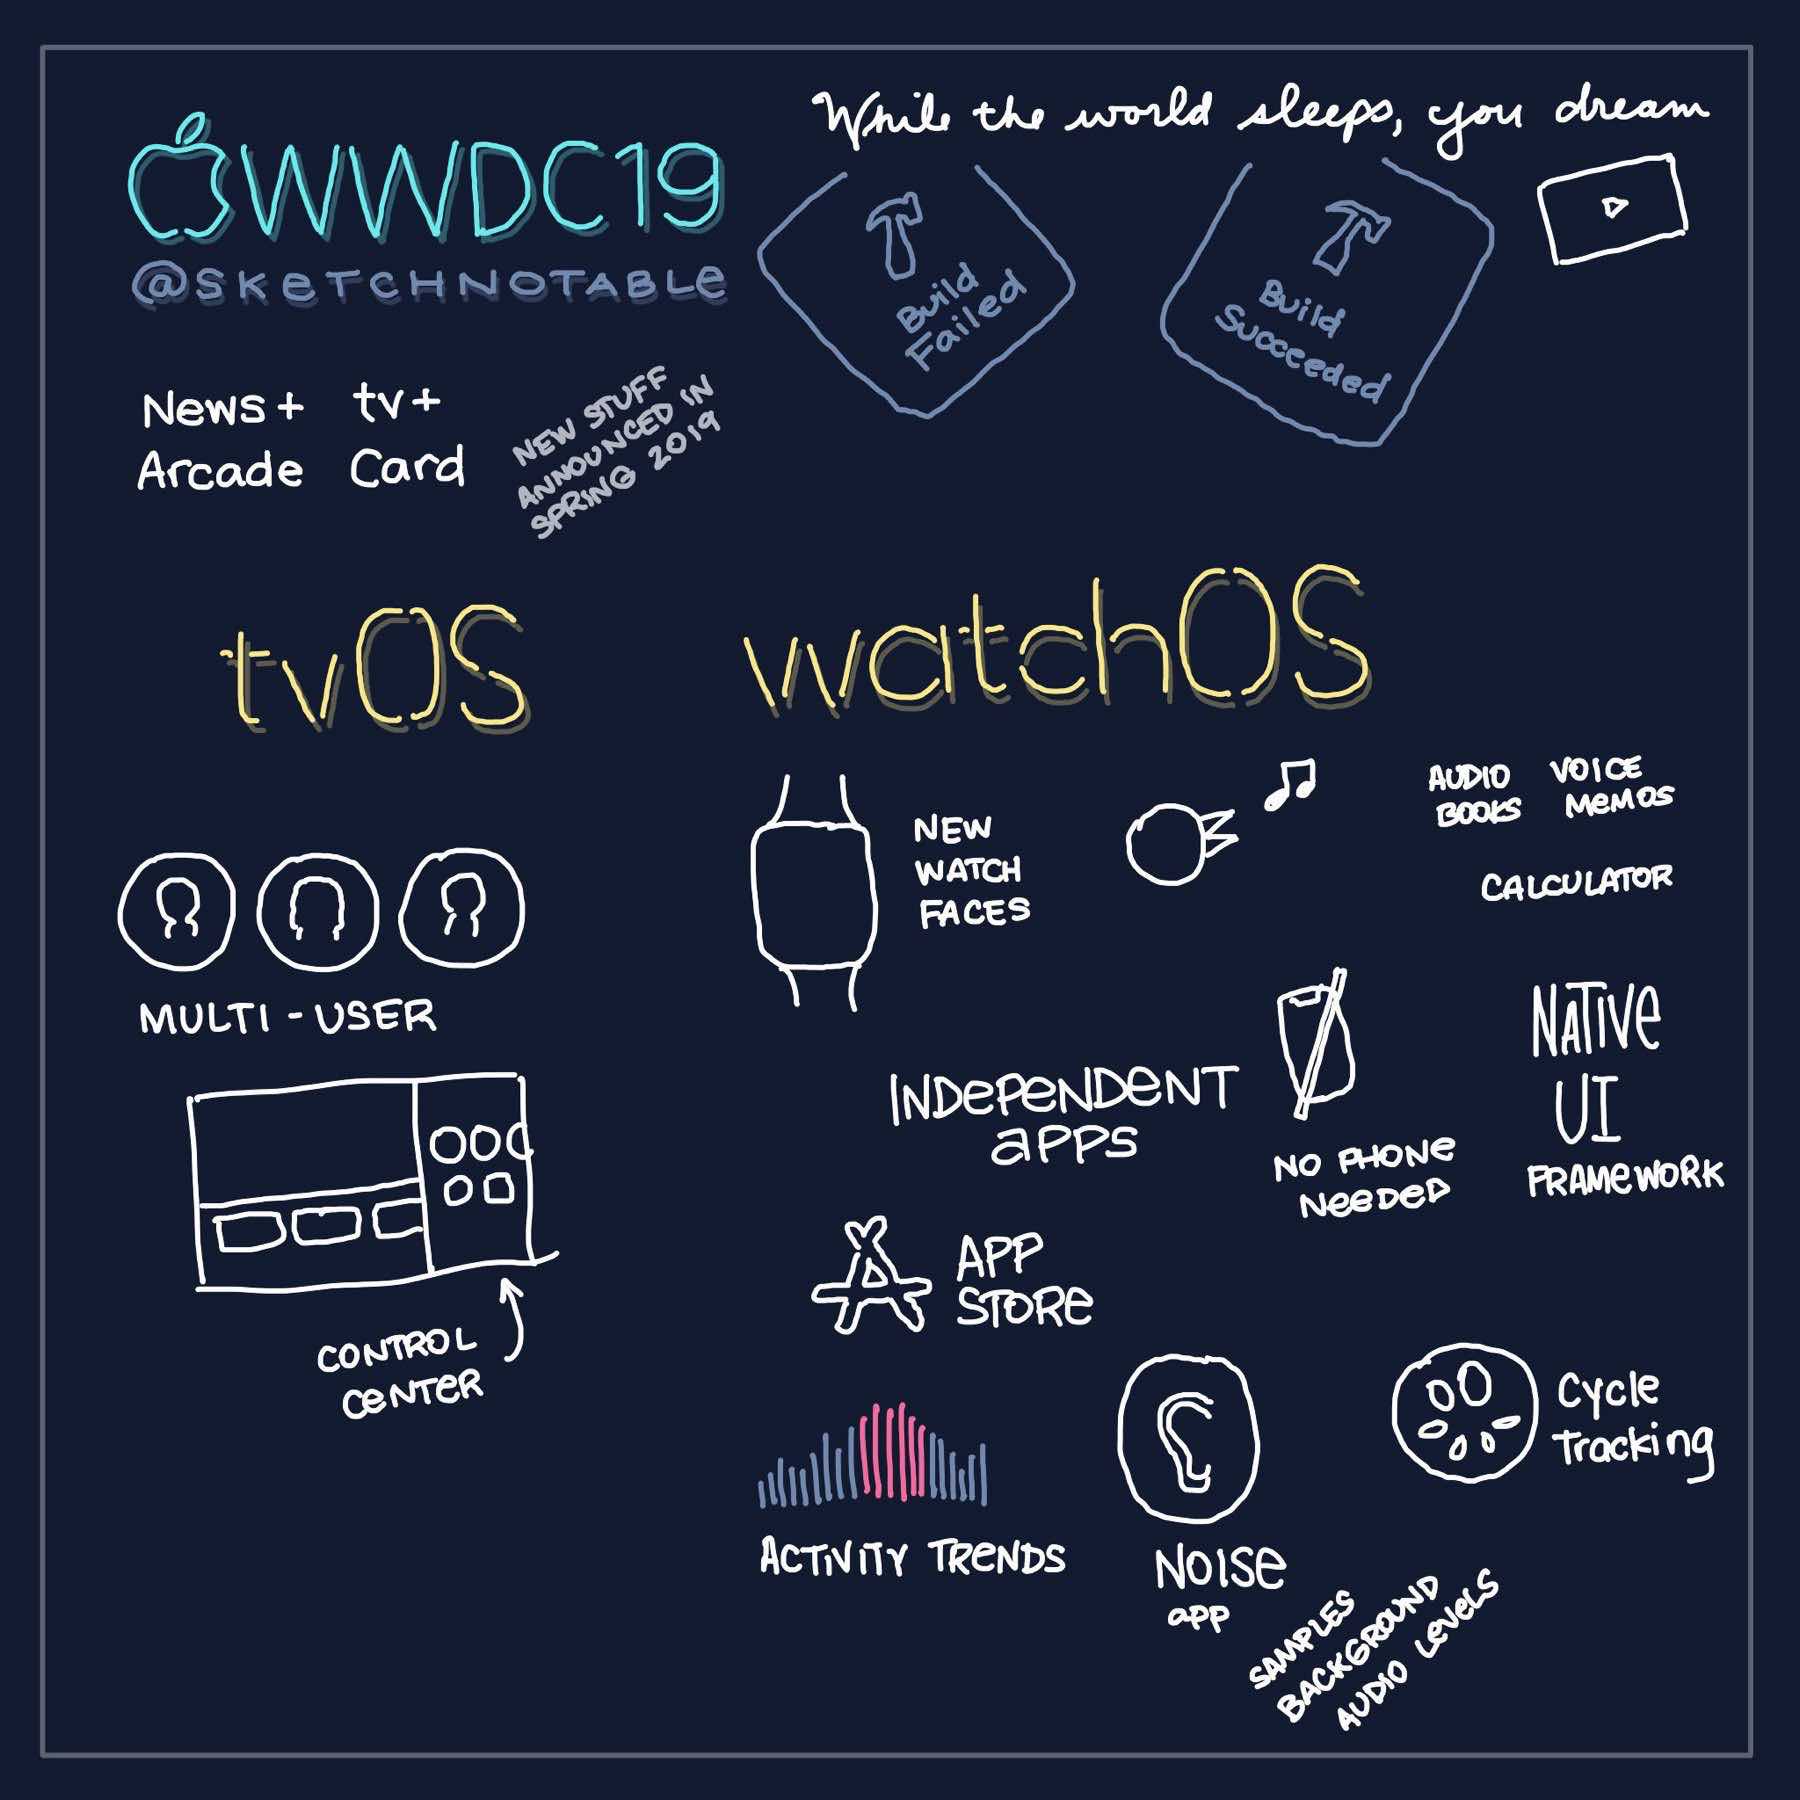 WWDC19
@SKETCHNOTABLE
While the world sleeps, you dream
Build
Failed
Build
Succeeded
News+ tv+
Arcade Card
NEW STUFF
ANNOUNCED IN
SPRING 2019
tvOS
MULTI-USER
CONTROL
CENTER
watchOS
NEW
WATCH
FACES
AUDIO
BOOKS
VOICE
MEMOS
CALCULATOR
INDEPENDENT
APPS
NO PHONE
NEEDED
NATIVE
UI
FRAMEWORK
APP
STORE
ACTIVITY TRENDS
NOISE
app
SAMPLES
BACKGROUND
AUDIO LEVELS
Cycle
Tracking